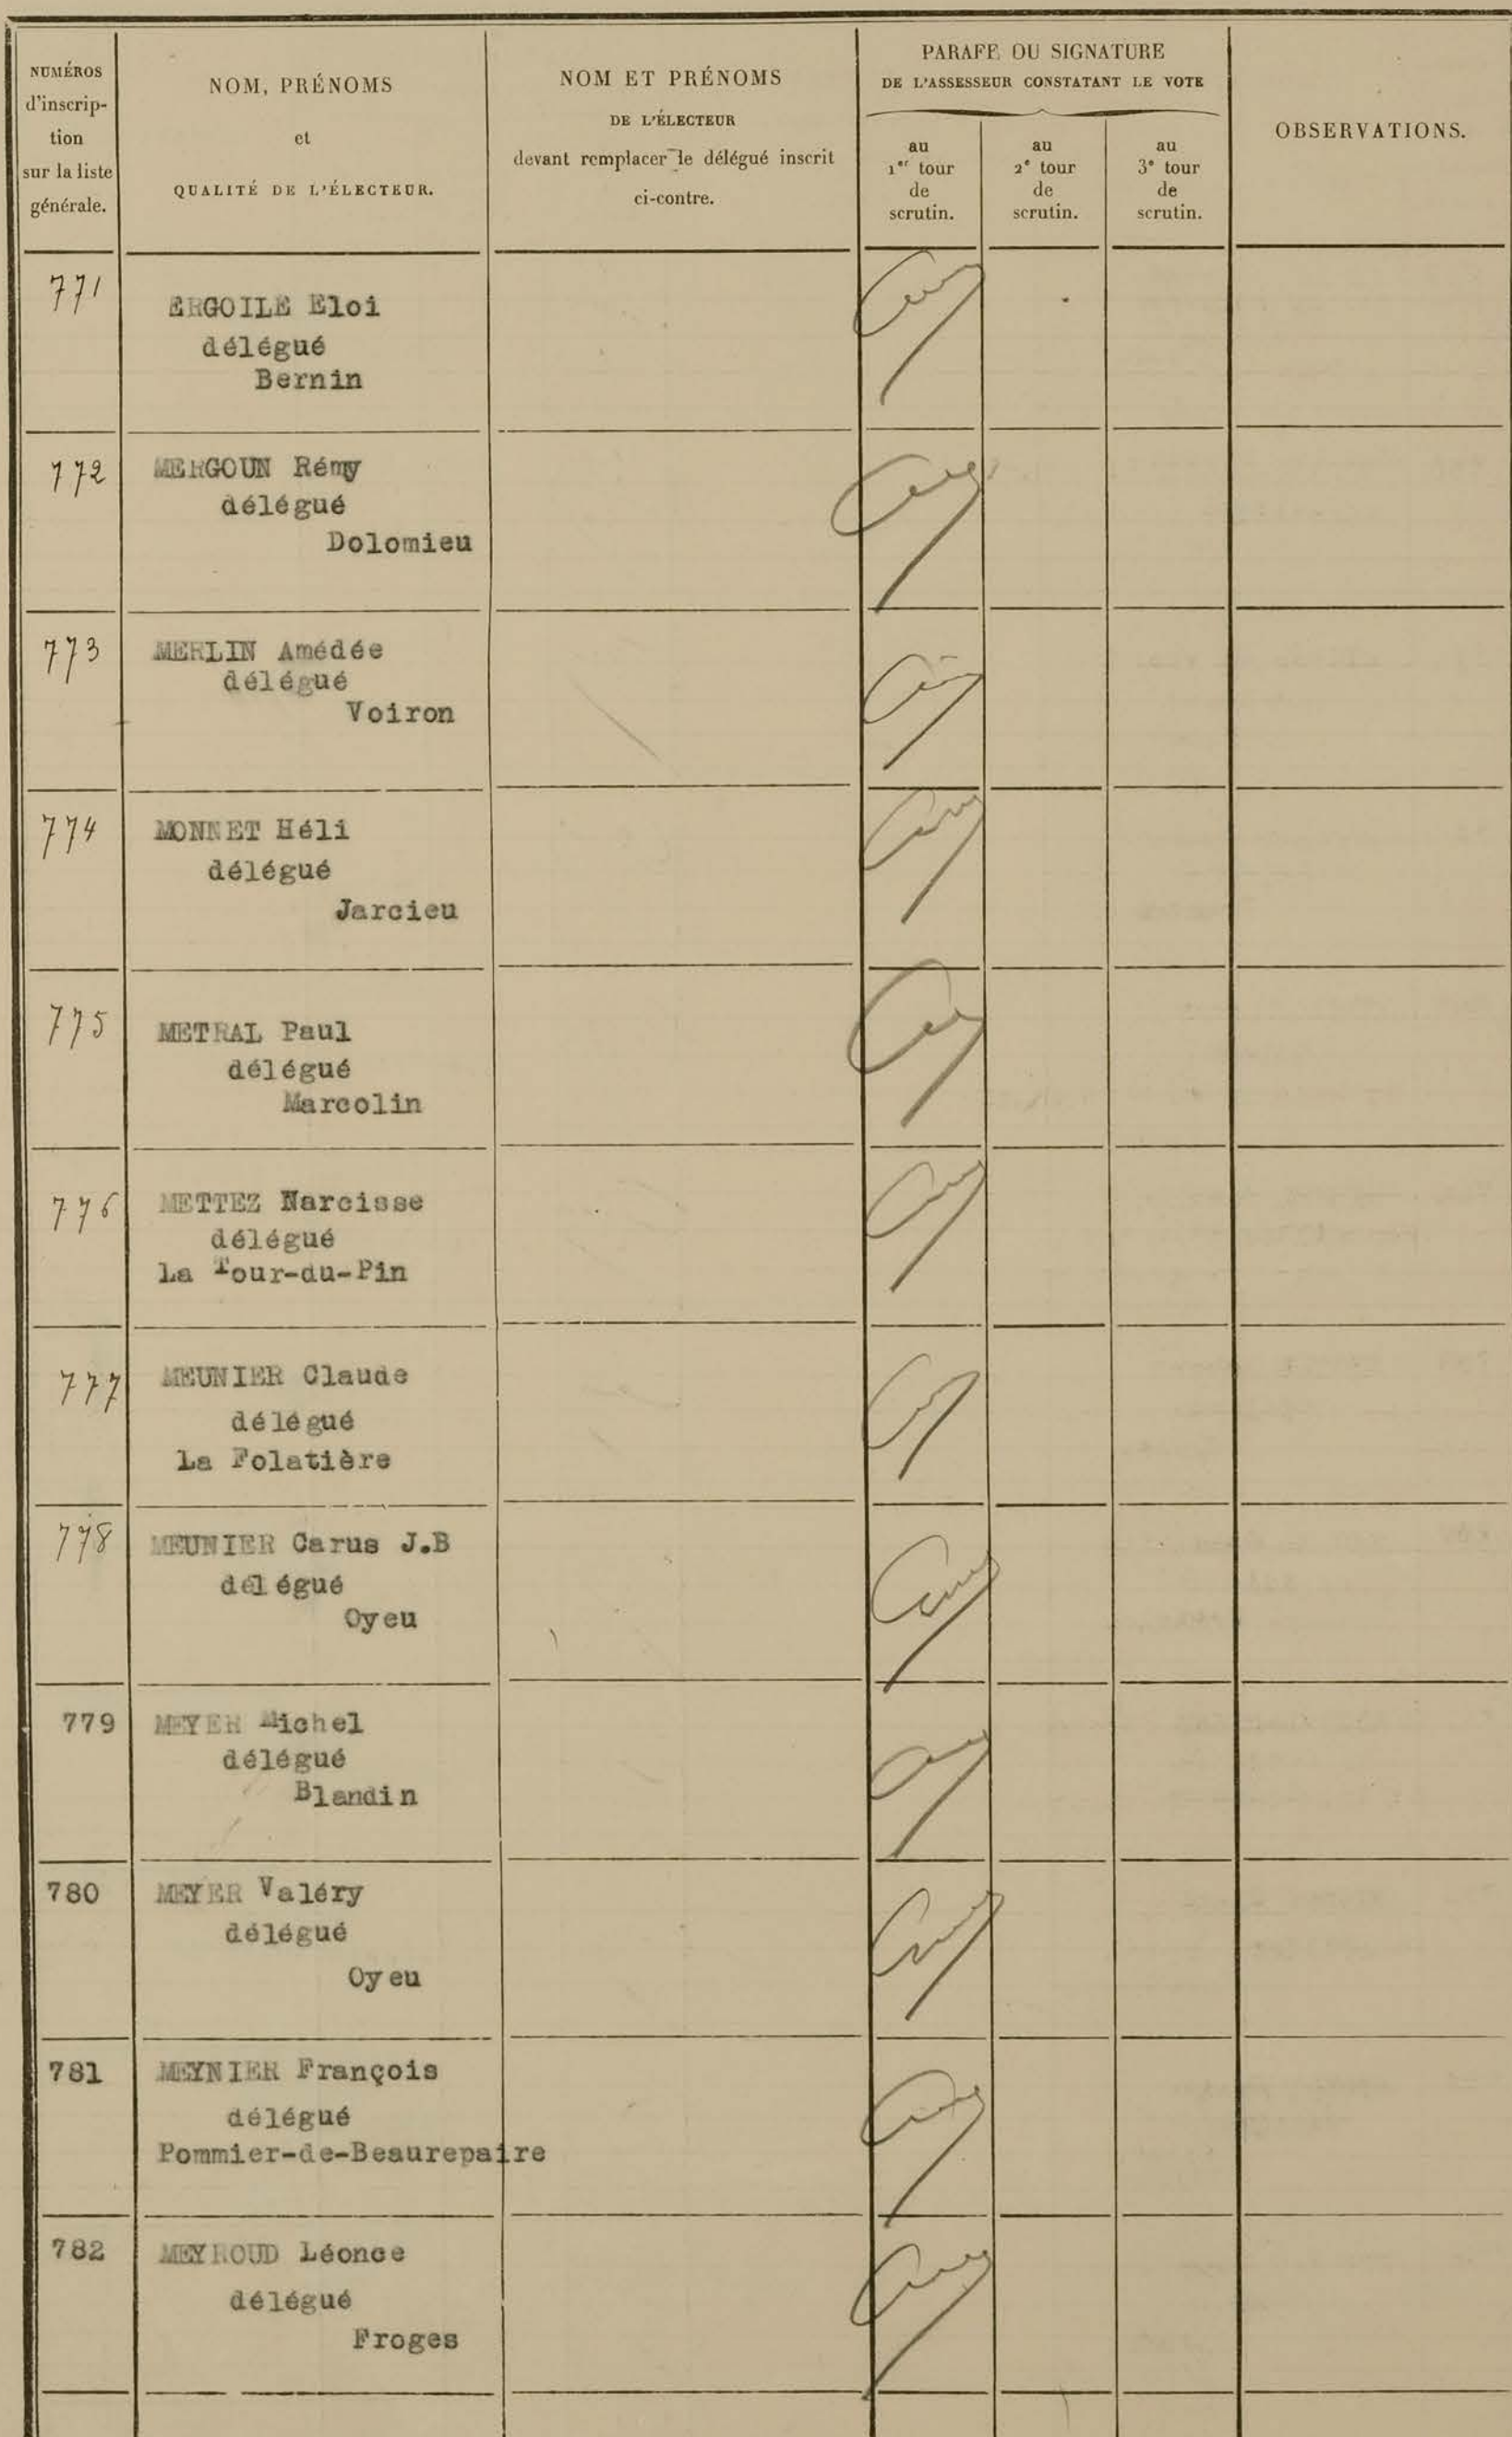 NUMÉROS
d'inscrip-
tion
sur la liste
générale.
NOM, PRÉNOMS
et
QUALITÉ DE L'ÉLECTEUR.
NOM ET PRÉNOMS
DE L'ÉLECTEUR
devant remplacer le délégué inscrit
ci-contre.
PARAFE OU SIGNATURE
DE L'ASSESSEUR CONSTATANT LE VOTE
au
1er tour
de
scrutin.
au
2e tour
de
scrutin.
au
3e tour
de
scrutin.
OBSERVATIONS.
771
ERGOILE Eloi
délégué
Bernin
772
MERGOUN Rémy
délégué
Dolomieu
773
MERLIN Amédée
délégué
Voiron
774
MONNET Héli
délégué
Jarcieu
775
METRAL Paul
délégué
Marcolin
776
METTEZ Narcisse
délégué
La Tour-du-Pin
777
MEUNIER Claude
délégué
La Folatière
778
MEUNIER Carus J.B
délégué
Oyeu
779
MEYER Michel
délégué
Blandin
780
MEYER Valéry
délégué
Oyeu
781
MEYNIER François
délégué
Pommier-de-Beaurepaire
782
MEYROUD Léonce
délégué
Froges